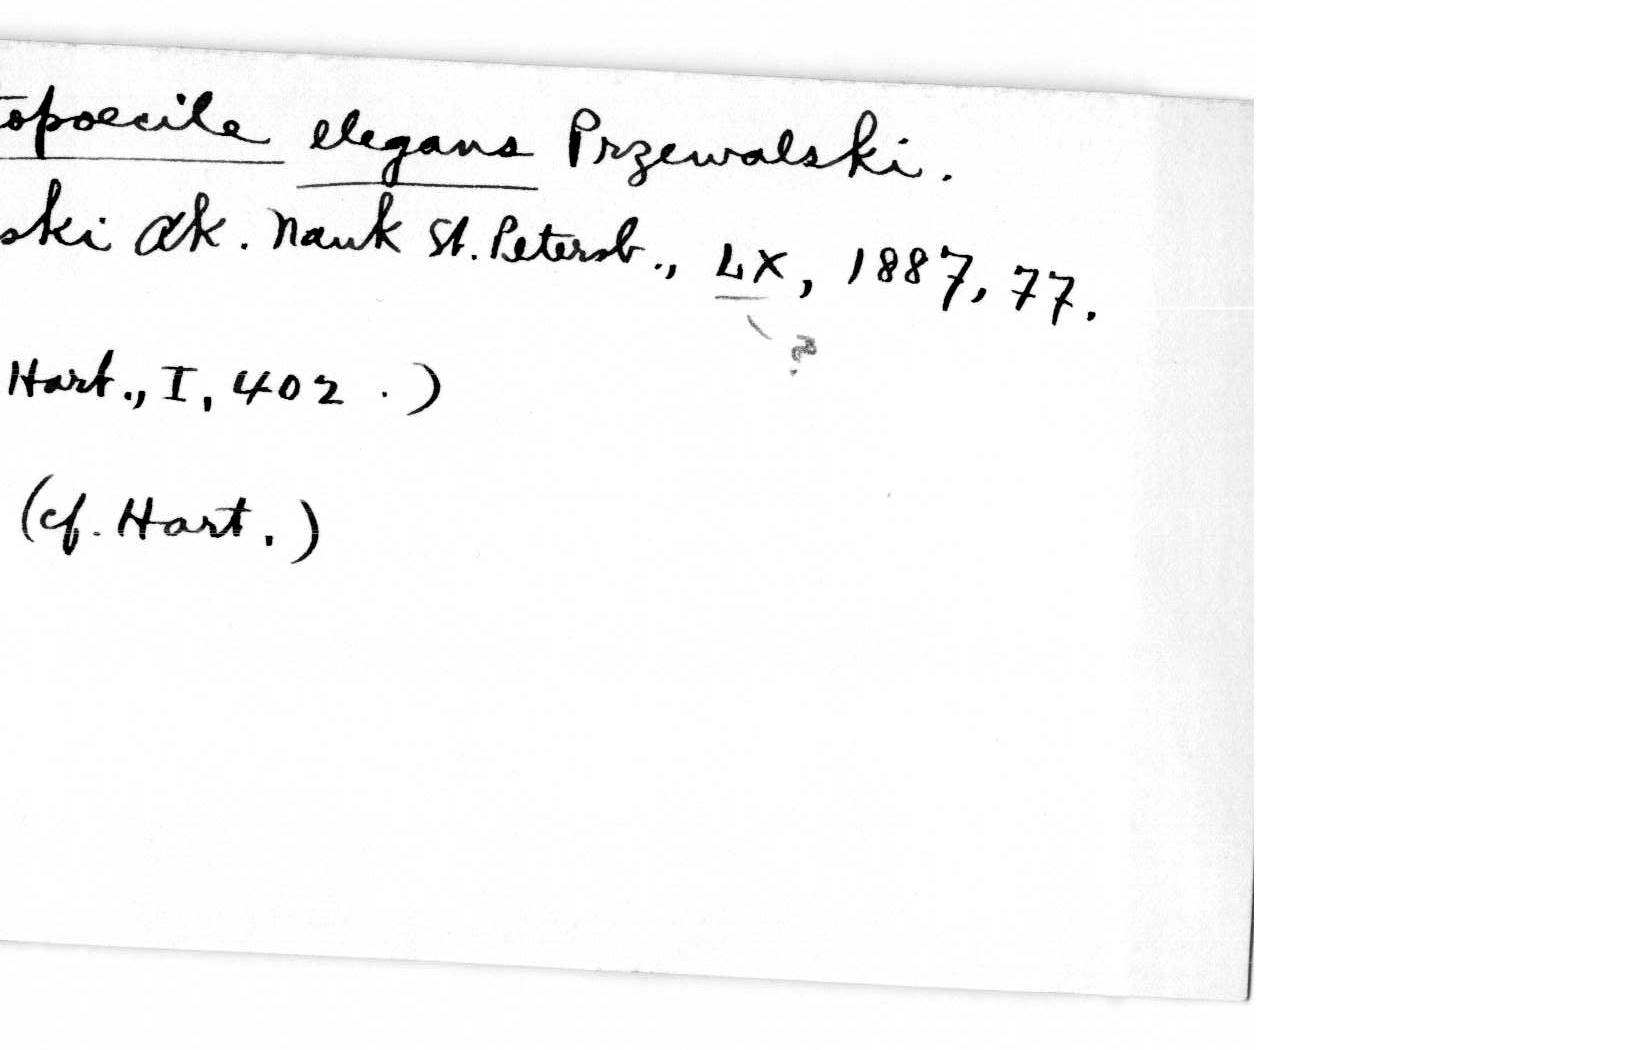 topoecile elegans Przewalski.
ski Ak. Nauk St. Petersb., LX, 1887, 77.
?
Hart., I, 402.)
(cf. Hart.)